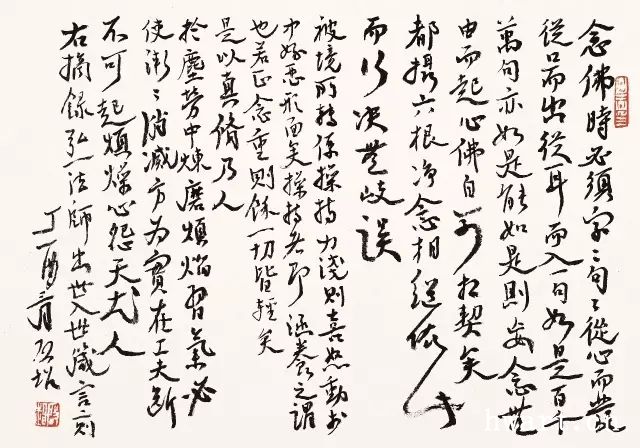 念佛時必須字〻句〻從心而發
從口而出從耳而入一句如是百千
萬句亦如是能如是則妄念無
由而起心佛自可相契矣
都攝六根净念相繼依此
而行決無歧誤
被境所轉係操持力淺則喜怒動於
中好惡形而矣操持者即涵養之謂
也若正念重則餘一切皆輕矣
是以真修乃人
於塵勞中煉磨煩惱習氣必
使漸〻消滅方為實在工夫斷
不可起煩燥心怨天尤人
右摘錄弘一法師出世入世箴言刻
丁酉